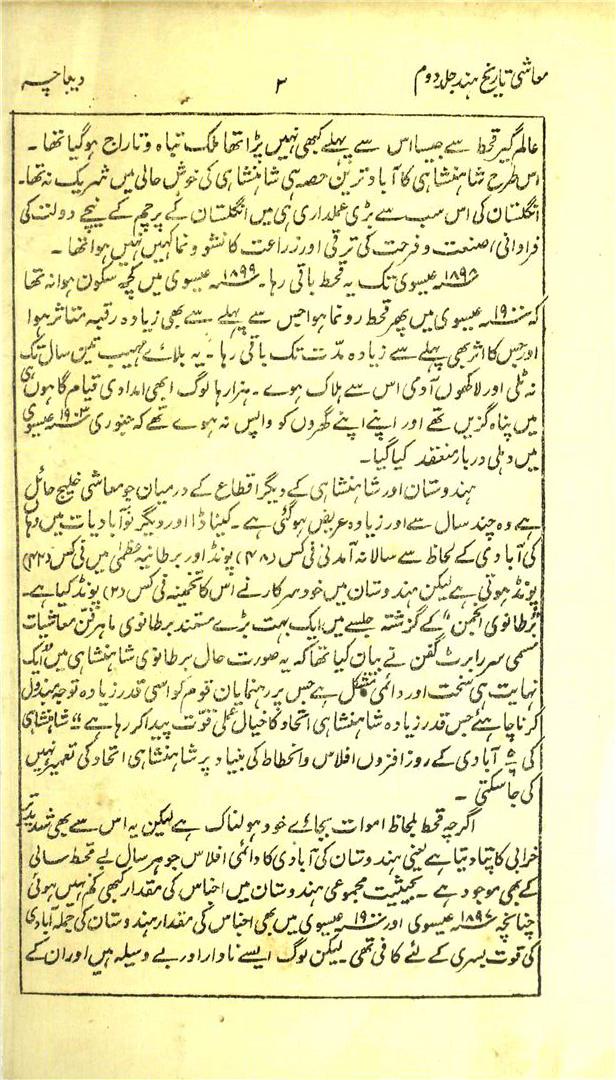 معاشی تاریخ ہند جلد دوم ۲ دیباچہ
عالم گیر قحط سے جیسا اس سے پہلے کبھی نہیں پڑا تھا ملک تباہ و تاراج ہو گیا تھا ۔
اس طرح شاہنشاہی کا آباد ترین حصہ ہی شاہنشاہی کی خوش حالی میں شریک نہ تھا۔
انگلستان کی اس سب سے بڑی عملداری ہی میں انگلستان کے پرچم کے نیچے دولت کی
فراوانی، صنعت و حرفت کی ترقی اور زراعت کا نشو و نما کہیں نہیں ہوا تھا ۔
۱۸۹۸ء عیسوی تک یہ قحط باقی رہا۔ ۱۸۹۹ء عیسوی میں کچھ سکون ہوا نہ تھا
کہ ۱۹۰۰ء عیسوی میں پھر قحط رونما ہوا جس سے پہلے سے بھی زیادہ رقبہ متاثر ہوا
اور جس کا اثر بھی پہلے سے زیادہ مدّت تک باقی رہا ۔ یہ بلائے مہیب تین سال تک
نہ ٹلی اور لاکھوں آدمی اس سے ہلاک ہوے ۔ ہزارہا لوگ ابھی امدادی قیام گاہوں ہی
میں پناہ گزیں تھے اور اپنے اپنے گھروں کو واپس نہ ہوے تھے کہ جنوری ۱۹۰۳ء عیسوی
میں دہلی دربار منعقد کیا گیا۔
ہندوستان اور شاہنشاہی کے دیگر اقطاع کے درمیان جو معاشی خلیج حائل
ہے وہ چند سال سے اور زیادہ عریض ہو گئی ہے ۔ کیناڈا اور دیگر نو آبادیات میں وہاں
کی آبادی کے لحاظ سے سالانہ آمدنی فی کس (۴۸) پونڈ اور برطانیہ عظمیٰ میں فی کس (۴۲)
پونڈ ہوتی ہے لیکن ہندوستان میں خود سرکار نے اس کا تخمینہ فی کس (۲) پونڈ کیا ہے۔
"برطانوی انجمن" کے گزشتہ جلسے میں ایک بہت بڑے مستند برطانوی ماہر فن معاشیات
مسمی سر رابرٹ گفن نے بیان کیا تھا کہ یہ صورت حال برطانوی شاہنشاہی میں "ایک
نہایت ہی سخت اور دائمی مشکل ہے جس پر رہنمایان قوم کو اسی قدر زیادہ توجہ مبذول
کرنا چاہئے جس قدر زیادہ شاہنشاہی اتحاد کا خیال عملی قوّت پیدا کر رہا ہے"۔ شاہنشاہی
کی آبادی کے روز افزوں افلاس و انحطاط کی بنیاد پر شاہنشاہی اتحاد کی تعمیر نہیں
کی جا سکتی ۔
اگرچہ قحط بلحاظ اموات بجائے خود ہولناک ہے لیکن یہ اس سے بھی شدید تر
خرابی کا پتا دیتا ہے یعنی ہندوستان کی آبادی کا دائمی افلاس جو ہر سال بے قحط سالی
کے بھی موجود ہے ۔ بحیثیت مجموعی ہندوستان میں اجناس کی مقدار کبھی کم نہیں ہوئی
چنانچہ ۱۸۹۷ء عیسوی اور ۱۹۰۰ء عیسوی میں بھی اجناس کی مقدار ہندوستان کی جملہ آبادی
کی قوت بسری کے لئے کافی تھی۔ لیکن لوگ ایسے نادار اور بے وسیلہ ہیں اور ان کے